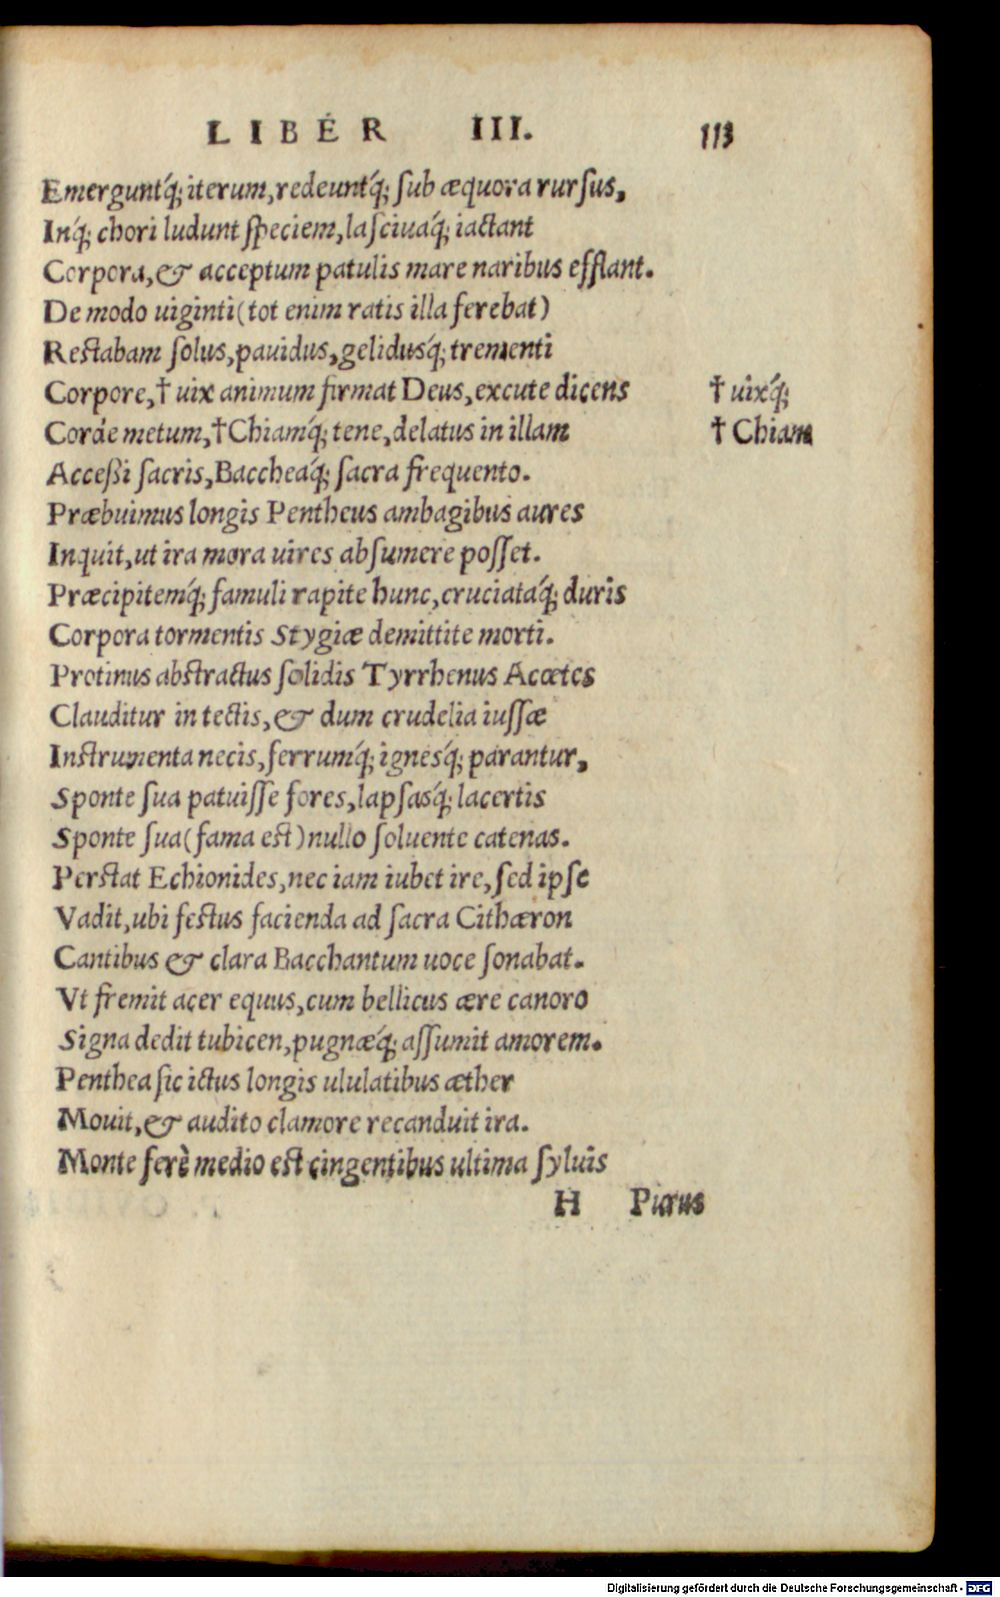 LIBER III. 113
Emergunt'q; iterum, redeunt'q; sub æquora rursus,
In'q; chori ludunt speciem, lasciua'q; iactant
Corpora, & acceptum patulis mare naribus efflant.
De modo uiginti (tot enim ratis illa ferebat)
Restabam solus, pauidus, gelidus'q; trementi
Corpore, † uix animum firmat Deus, excute dicens † uix'q;
Corde metum, † Chiam'q; tene, delatus in illam † Chiam
Acceßi sacris, Bacchea'q; sacra frequento.
Præbuimus longis Pentheus ambagibus aures
Inquit, ut ira mora uires absumere posset.
Præcipitem'q; famuli rapite hunc, cruciata'q; duris
Corpora tormentis Stygiæ demittite morti.
Protinus abstractus solidis Tyrrhenus Acœtes
Clauditur in tectis, & dum crudelia iussæ
Instrumenta necis, ferrum'q; ignes'q; parantur,
Sponte sua patuisse fores, lapsas'q; lacertis
Sponte sua (fama est) nullo soluente catenas.
Perstat Echionides, nec iam iubet ire, sed ipse
Vadit, ubi festus facienda ad sacra Cithæron
Cantibus & clara Bacchantum uoce sonabat.
Vt fremit acer equus, cum bellicus ære canoro
Signa dedit tubicen, pugnæ'q; assumit amorem.
Penthea sic ictus longis ululatibus æther
Mouit, & audito clamore recanduit ira.
Monte ferè medio est cingentibus ultima syluis
H Purus
Digitalisierung gefördert durch die Deutsche Forschungsgemeinschaft - DFG